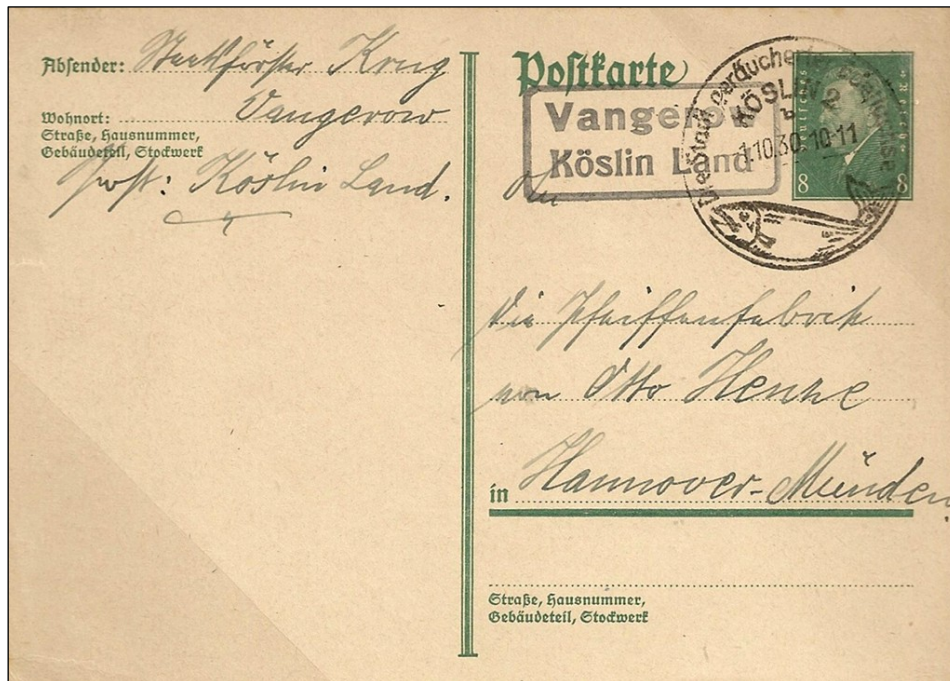 Absender: Stadtförster Krug
Wohnort: Vangerow
Straße, Hausnummer,
Gebäudeteil, Stockwerk
Post: Köslin Land.
Postkarte
Vangerow
Köslin Land
Die Stadt geräucherter
KÖSLIN 2
1.10.30. 10-11
Deutsches Reich
8 8
An
die Pfeiffenfabrik
von Otto Henze
in Hannover-Münden.
Straße, Hausnummer,
Gebäudeteil, Stockwerk